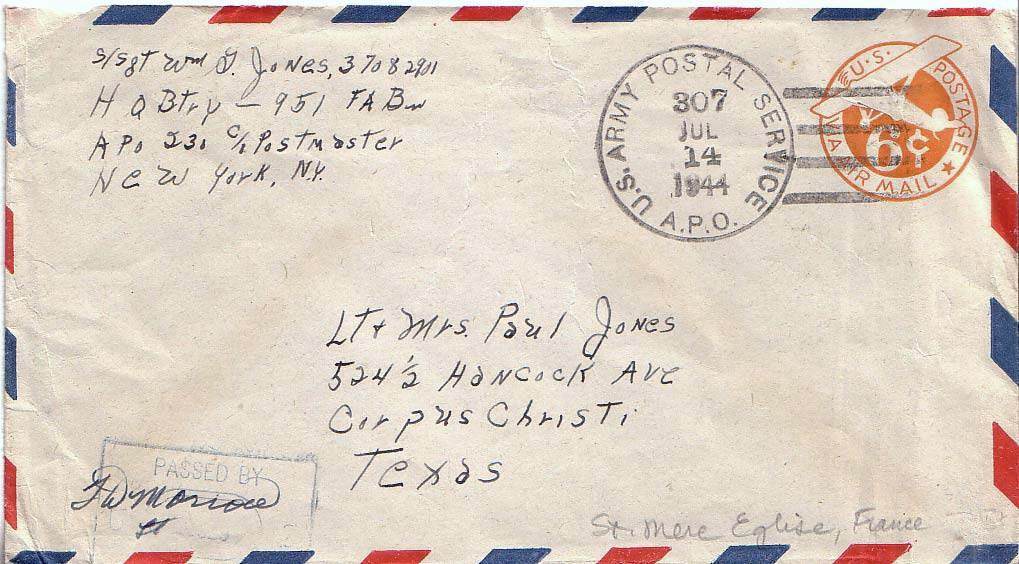 S/Sgt Wm G. Jones, 37082901
H Q Btry - 951 FA Bn
APO 230 c/o Postmaster
New York, N.Y.
U.S. ARMY POSTAL SERVICE
307
JUL
14
1944
A.P.O.
U.S. POSTAGE
6¢
VIA AIR MAIL
Lt + Mrs. Paul Jones
524 ½ Hancock Ave
Corpus Christi
Texas
PASSED BY
Lt
St. Mere Eglise, France